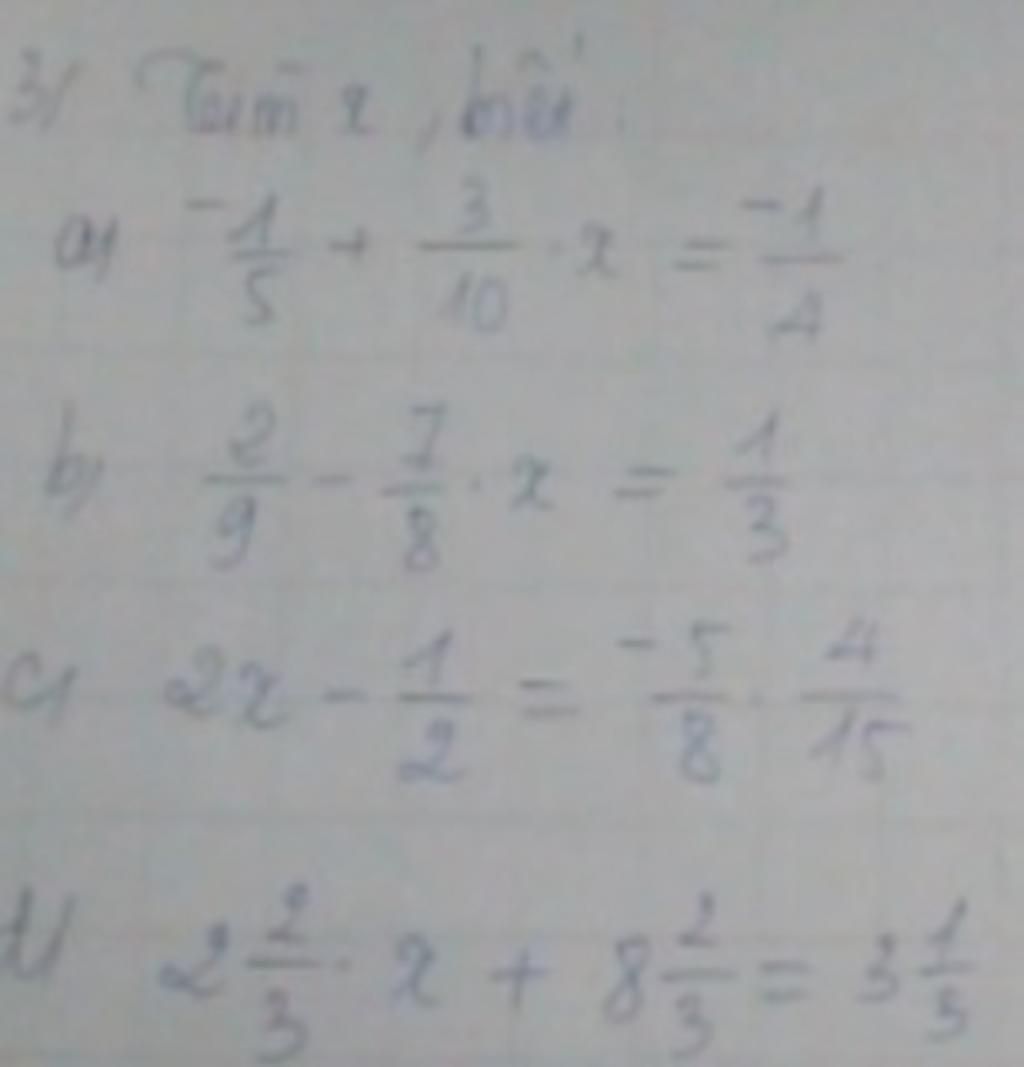 3/ Tìm x, biết:
a) -1/5 + 3/10 . x = -1/4
b) 2/9 - 7/8 . x = 1/3
c) 2x - 1/2 = -5/8 . 4/15
d) 2 2/3 . x + 8 2/3 = 3 1/3